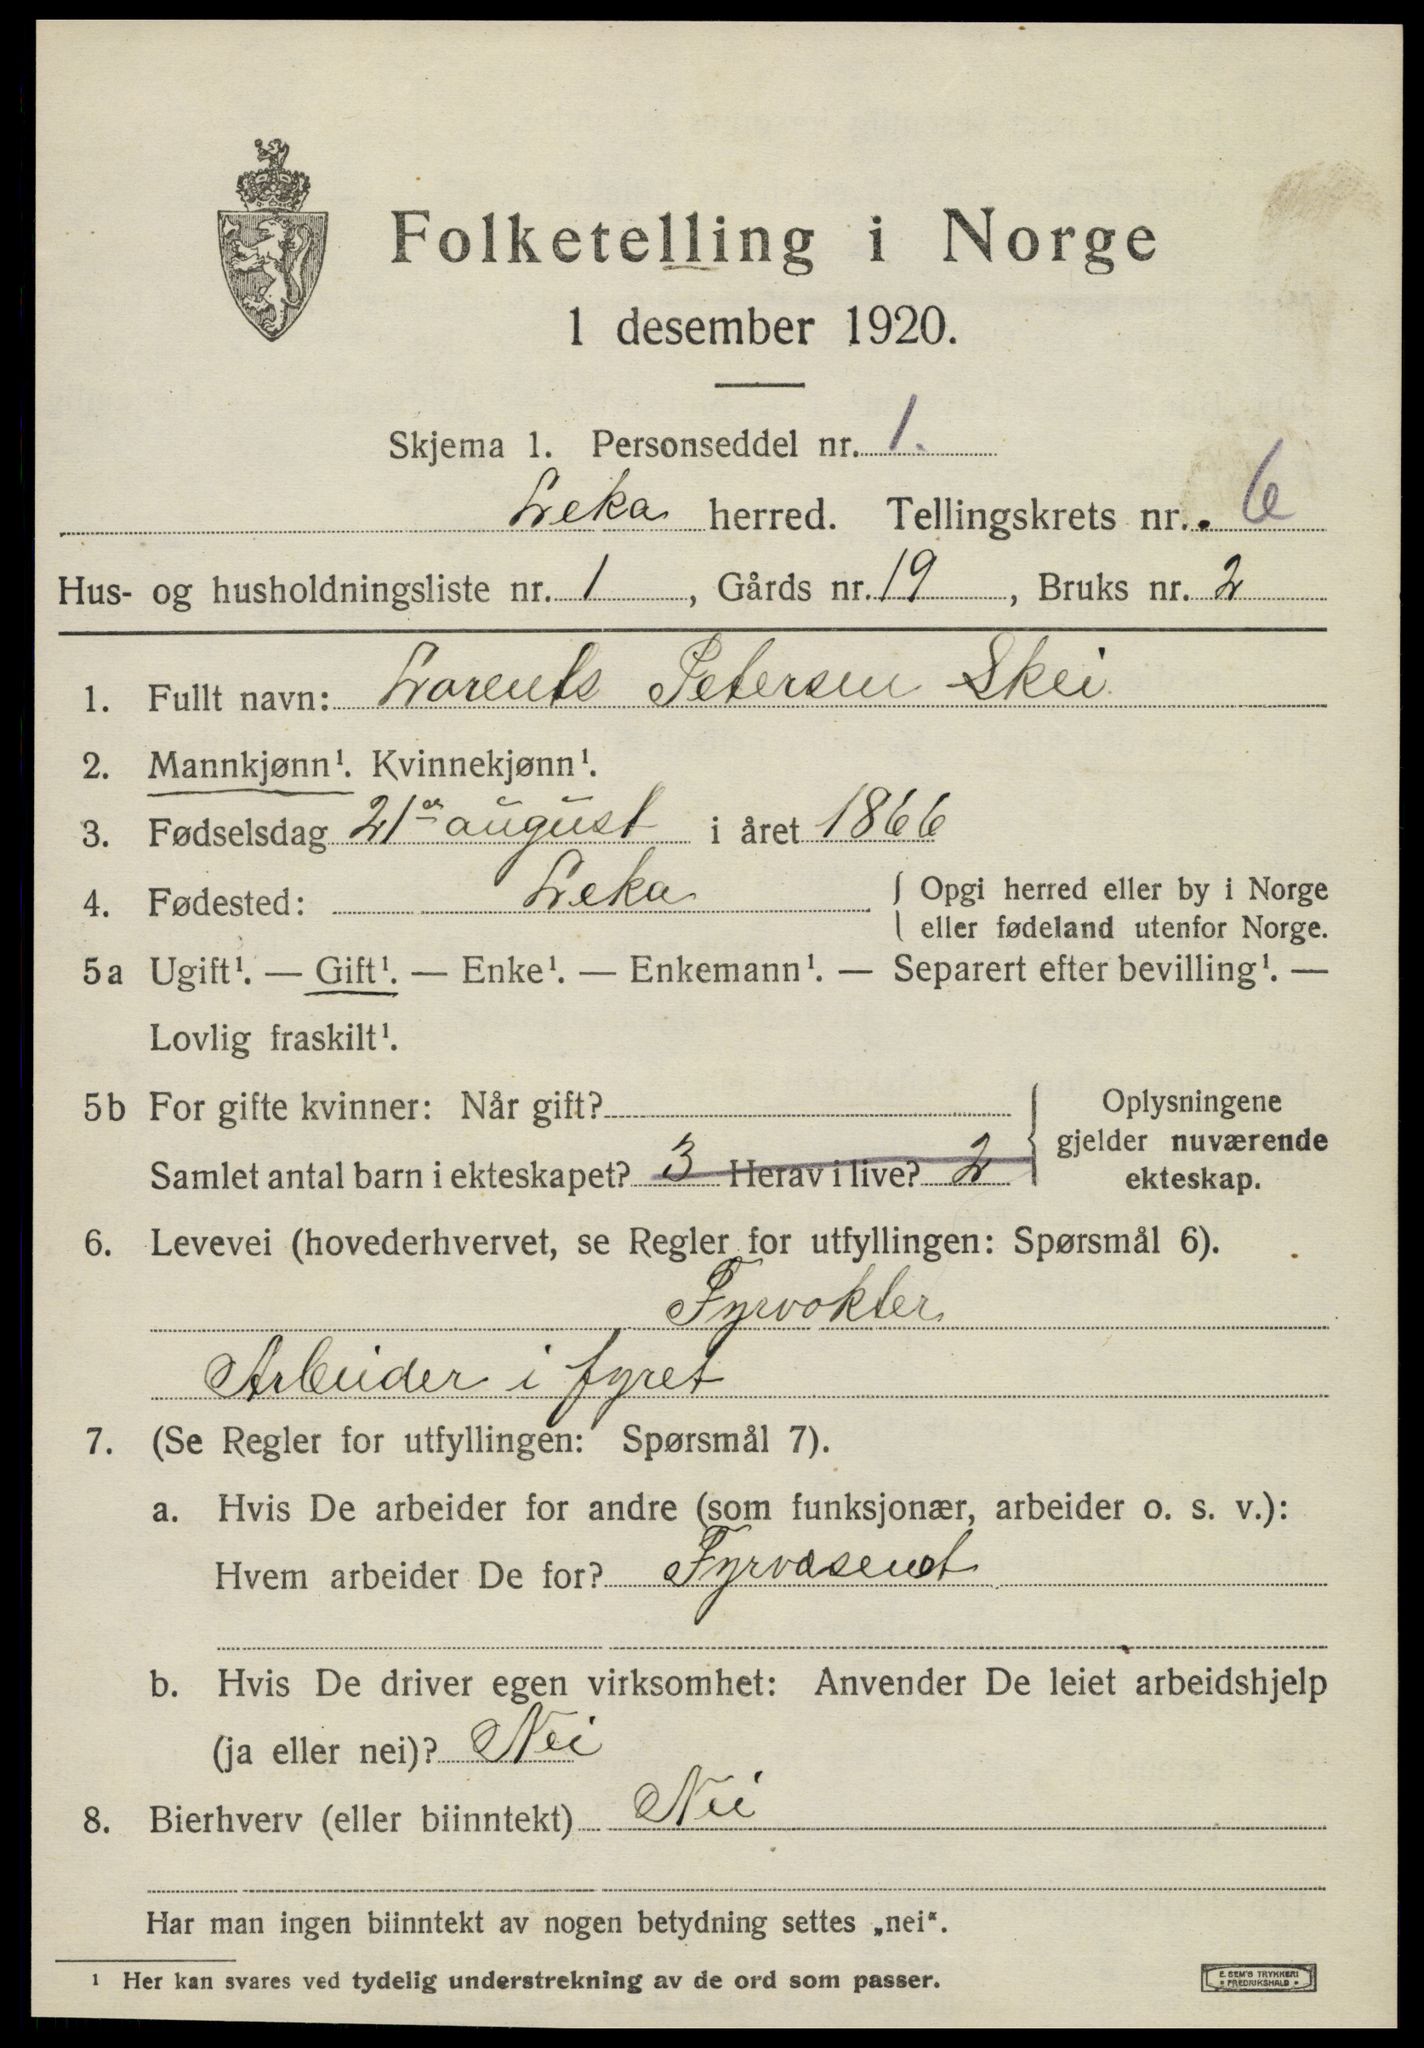 Folketelling i Norge
1 desember 1920.
Skjema 1. Personseddel nr. 1.
Leka herred. Tellingskrets nr. 6
Hus- og husholdningsliste nr. 1, Gårds nr. 19, Bruks nr. 2
1. Fullt navn: Lorents Petersen Skei
2. Mannkjønn¹. Kvinnekjønn¹.
3. Fødselsdag 21de august i året 1866
4. Fødested: Leka { Opgi herred eller by i Norge
eller fødeland utenfor Norge.
5a Ugift¹. — Gift¹. — Enke¹. — Enkemann¹. — Separert efter bevilling¹. —
Lovlig fraskilt¹.
5b For gifte kvinner: Når gift?
Samlet antal barn i ekteskapet? 3 Herav i live? 2
Oplysningene
gjelder nuværende
ekteskap.
6. Levevei (hovederhvervet, se Regler for utfyllingen: Spørsmål 6).
Fyrvokter
Arbeider i fyret
7. (Se Regler for utfyllingen: Spørsmål 7).
a. Hvis De arbeider for andre (som funksjonær, arbeider o. s. v.):
Hvem arbeider De for? Fyrvesenet
b. Hvis De driver egen virksomhet: Anvender De leiet arbeidshjelp
(ja eller nei)? Nei
8. Bierhverv (eller biinntekt) Nei
Har man ingen biinntekt av nogen betydning settes „nei".
¹ Her kan svares ved tydelig understrekning av de ord som passer.
E. SEM'S TRYKKERI
FREDRIKSHALD